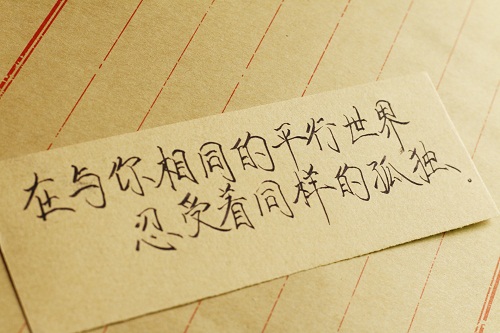 在与你相同的平行世界
忍受着同样的孤独.